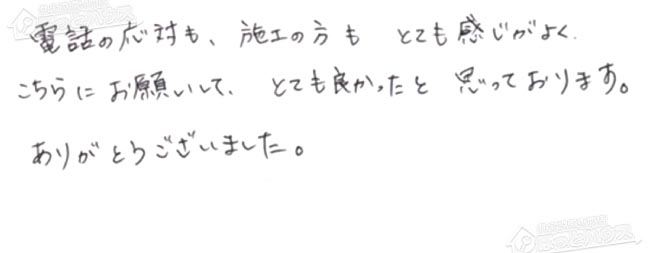 電話の応対も、施工の方も とても感じがよく、
こちらにお願いして、とても良かったと 思っております。
ありがとうございました。